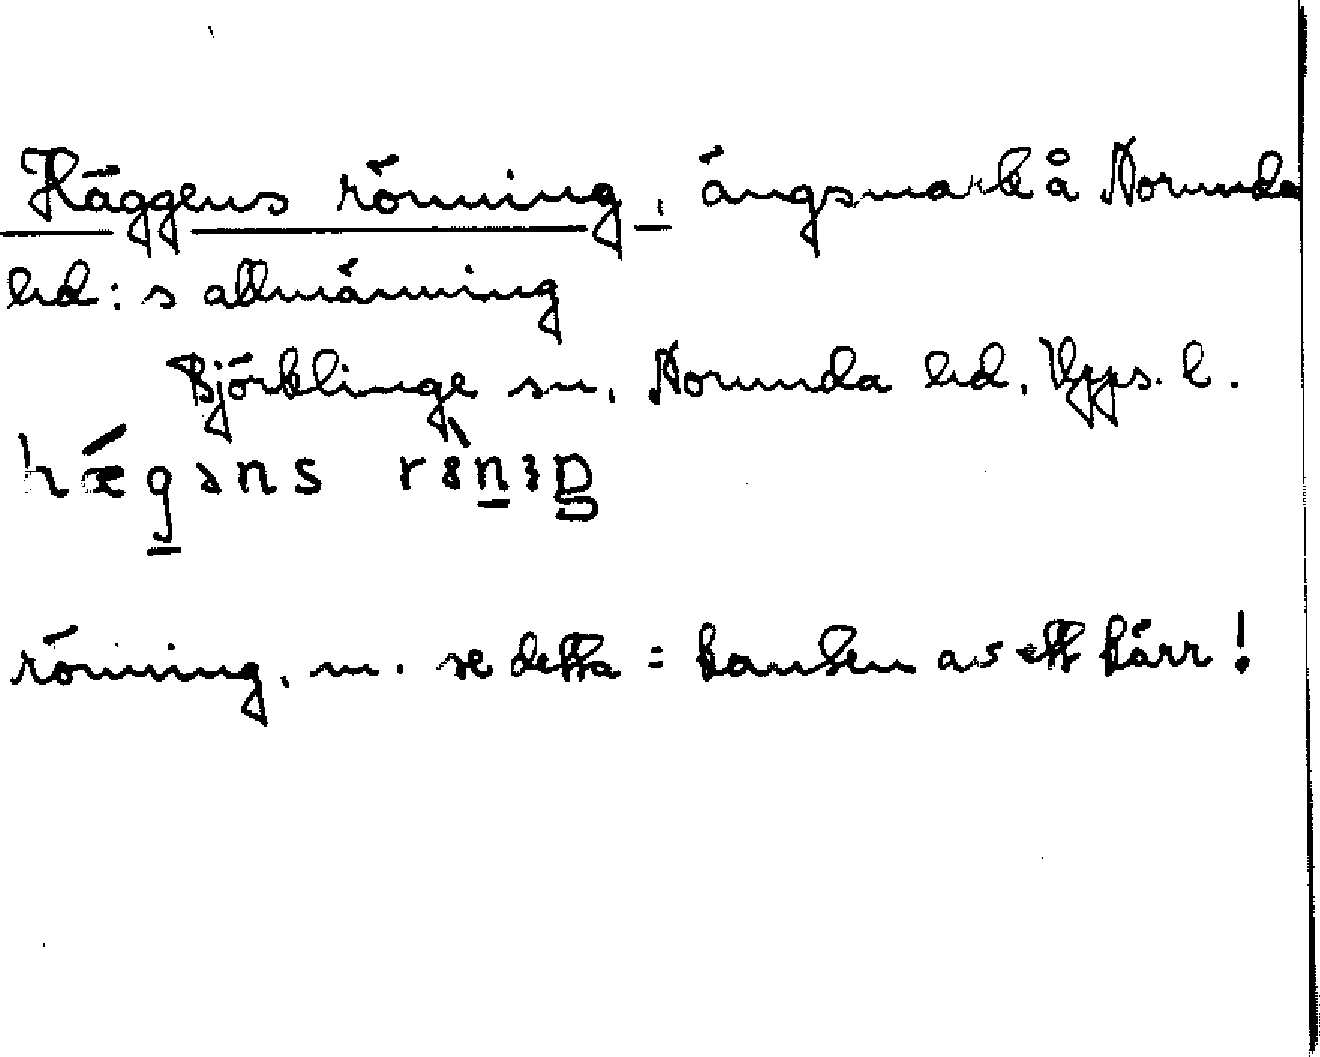 Häggens rönning, ängsmark å Norunda
hd:s allmänning
Björklinge sn, Norunda hd, Upps. l.
rönning, m. se detta = kanten av ett kärr!